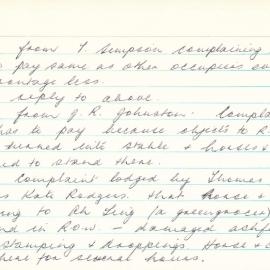 from T. Simpson complaining
pay same as other occupiers
frontage less.
reply to above.
from J. R. Johnston. Compla
has to pay because objects to R.
penned with stable & houses &
ed to stand there.
Complaint lodged by Thomas
Kate Rodgers. that horse &
ing to Ah Ling (a greengrocer)
in R.O.W. - damaged
Stamping & droppings. Horse & c
here for several hours.